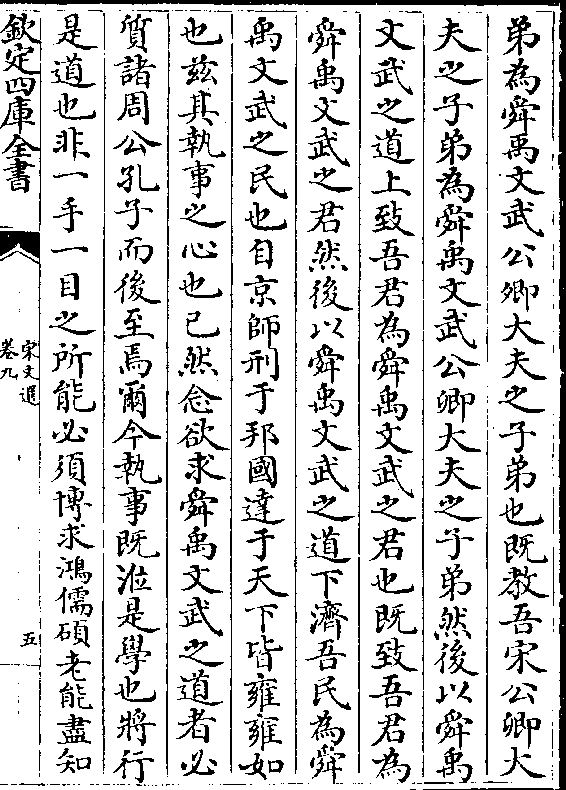 弟為舜禹文武公卿大夫之子弟也既教吾宋公卿大
夫之子弟為舜禹文武公卿大夫之子弟然後以舜禹
文武之道上致吾君為舜禹文武之君也既致吾君為
舜禹文武之君然後以舜禹文武之道下濟吾民為舜
禹文武之民也自京師刑于邦國達于天下皆雍雍如
也兹其執事之心也已然念欲求舜禹文武之道者必
質諸周公孔子而後至焉爾今執事既涖是學也將行
是道也非一手一目之所能必須博求鴻儒碩老能盡知
欽定四庫全書
宋文選
卷九
五